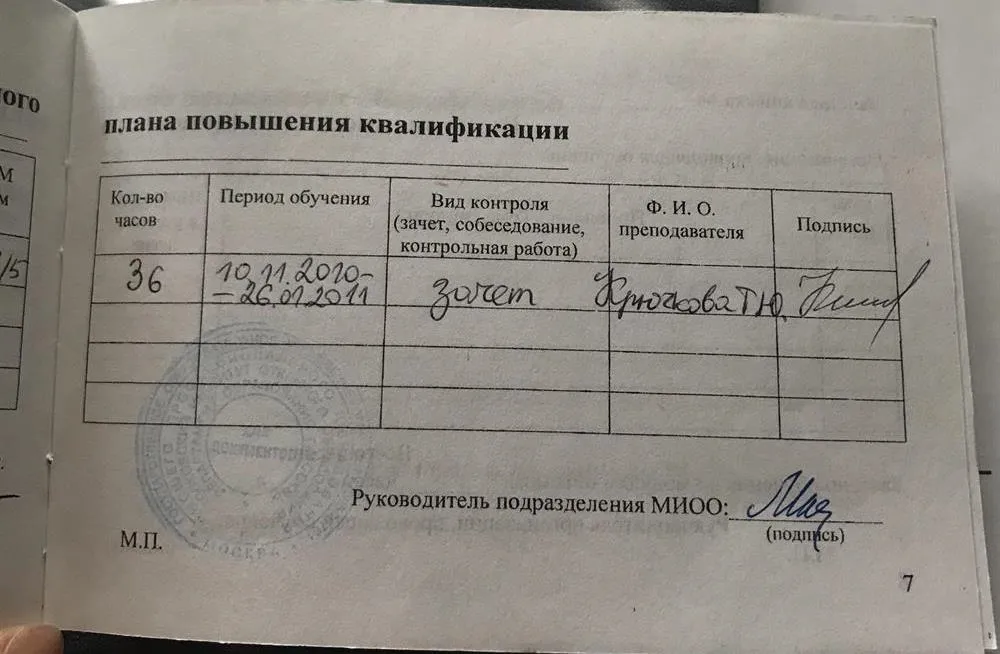 ого
плана повышения квалификации
м
/5
Кол-во
часов
Период обучения
Вид контроля
(зачет, собеседование,
контрольная работа)
Ф. И. О.
преподавателя
Подпись
36
10.11.2010-
- 26.01.2011
зачет
Крючкова Т.Ю.
МОСКВА
Руководитель подразделения МИОО:
М.П.
(подпись)
7